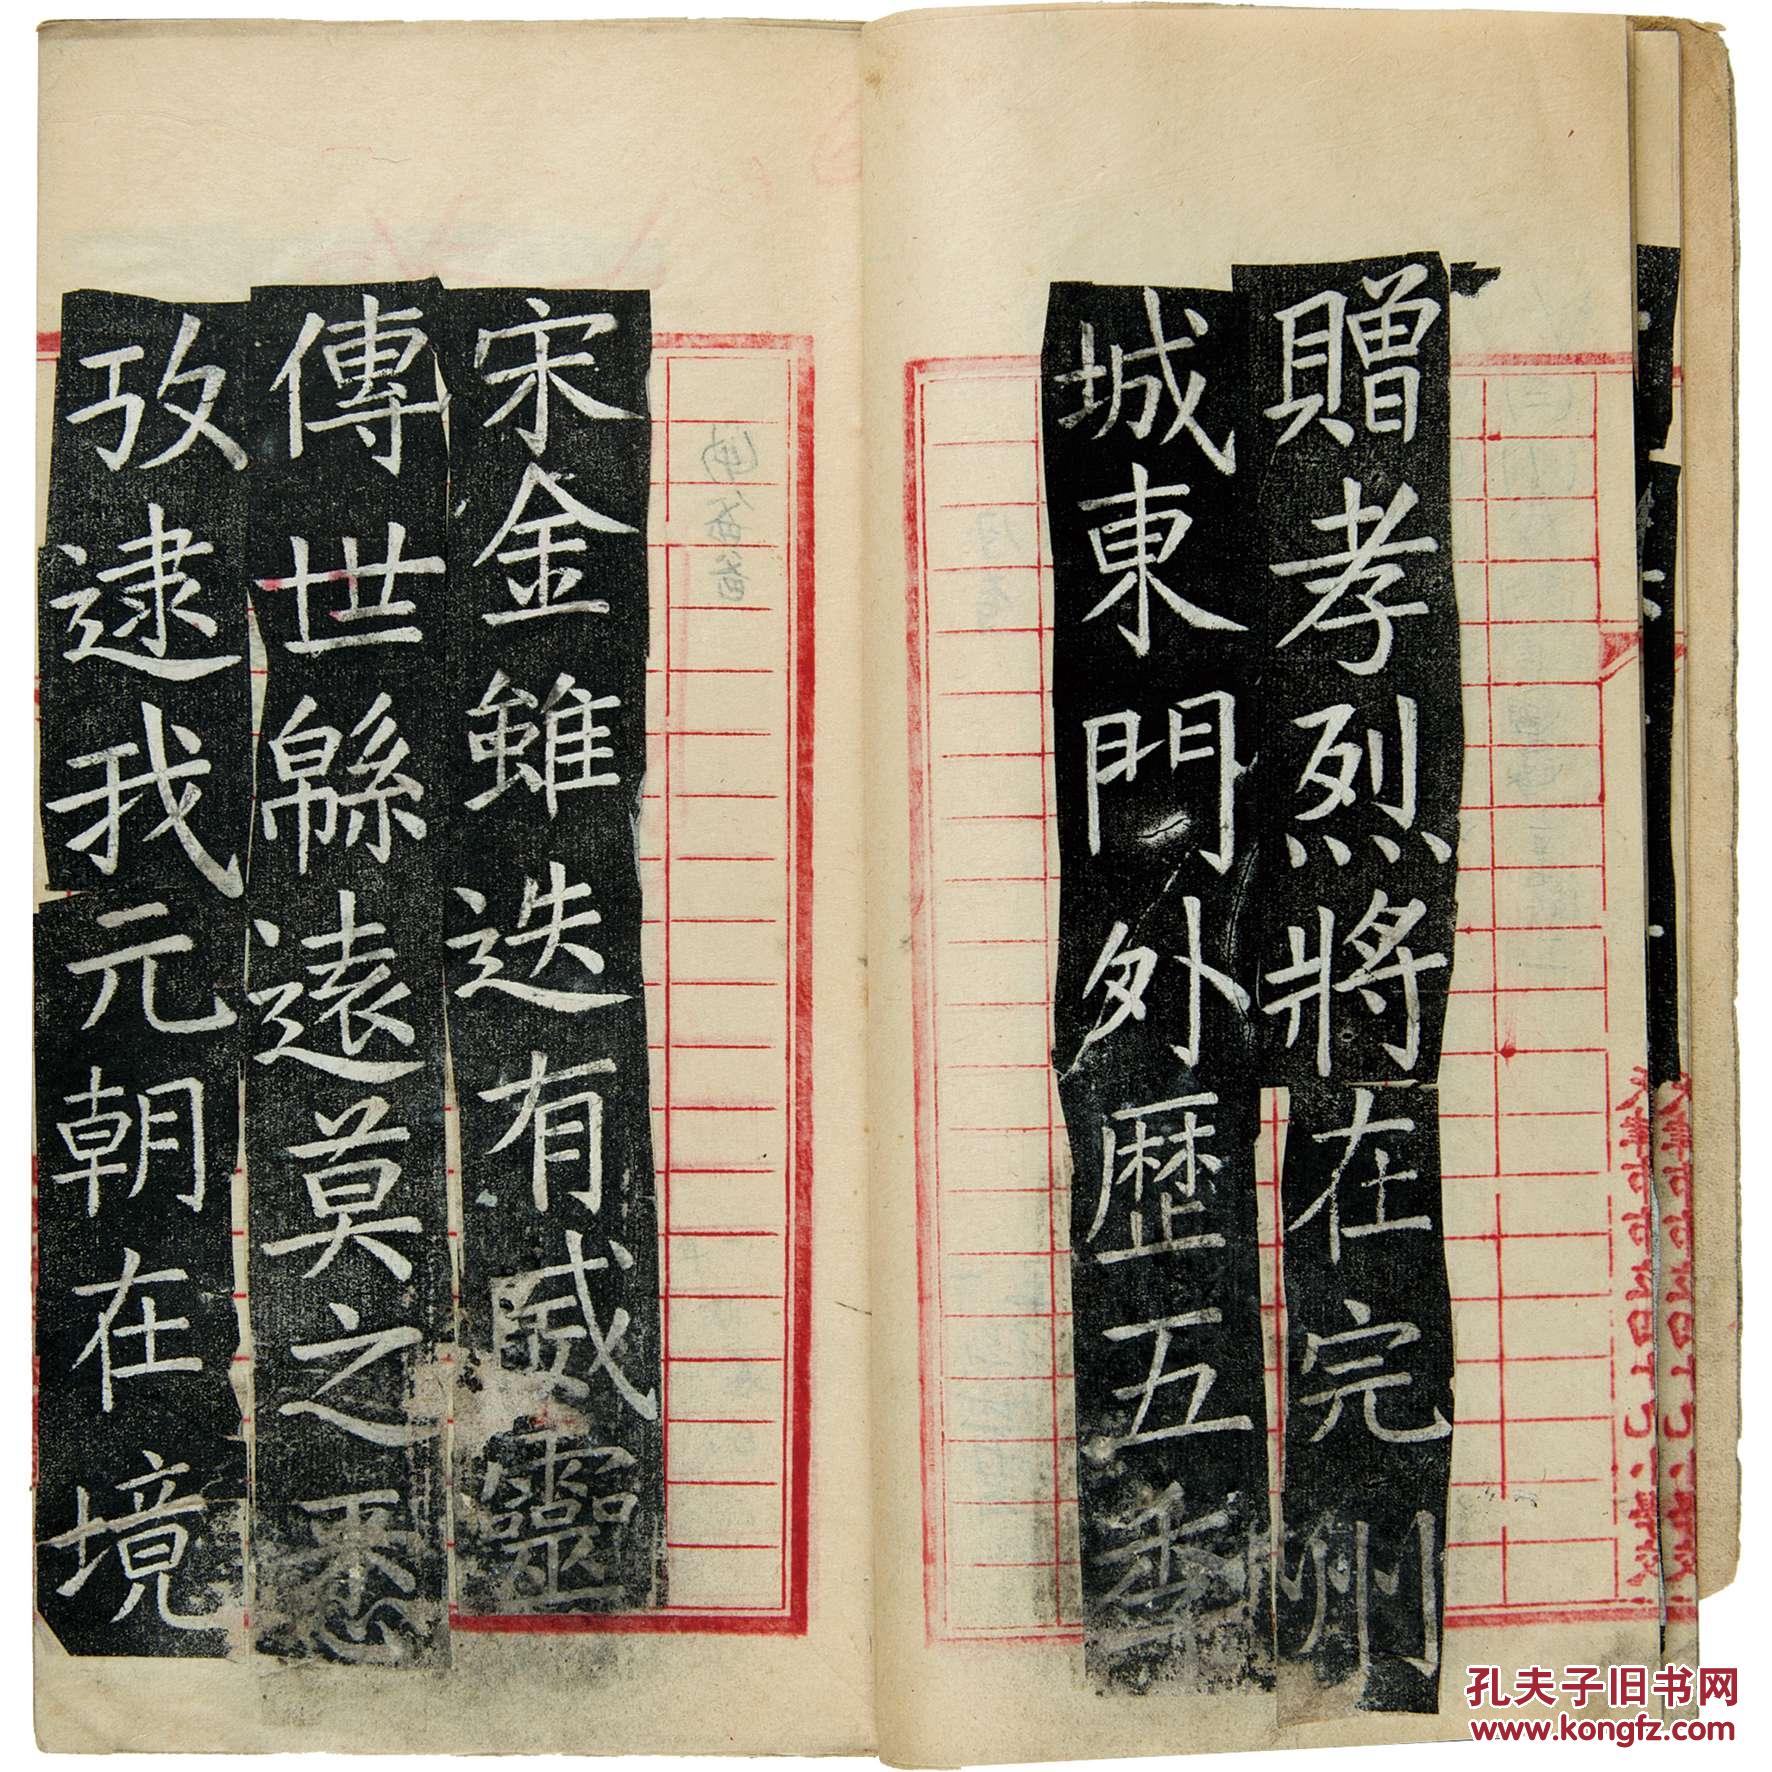 贈孝烈將在完州
城東門外歷五季
宋金雖迭有威靈
傳世緜遠莫之悉
攷逮我元朝在境
孔夫子旧书网
www.kongfz.com